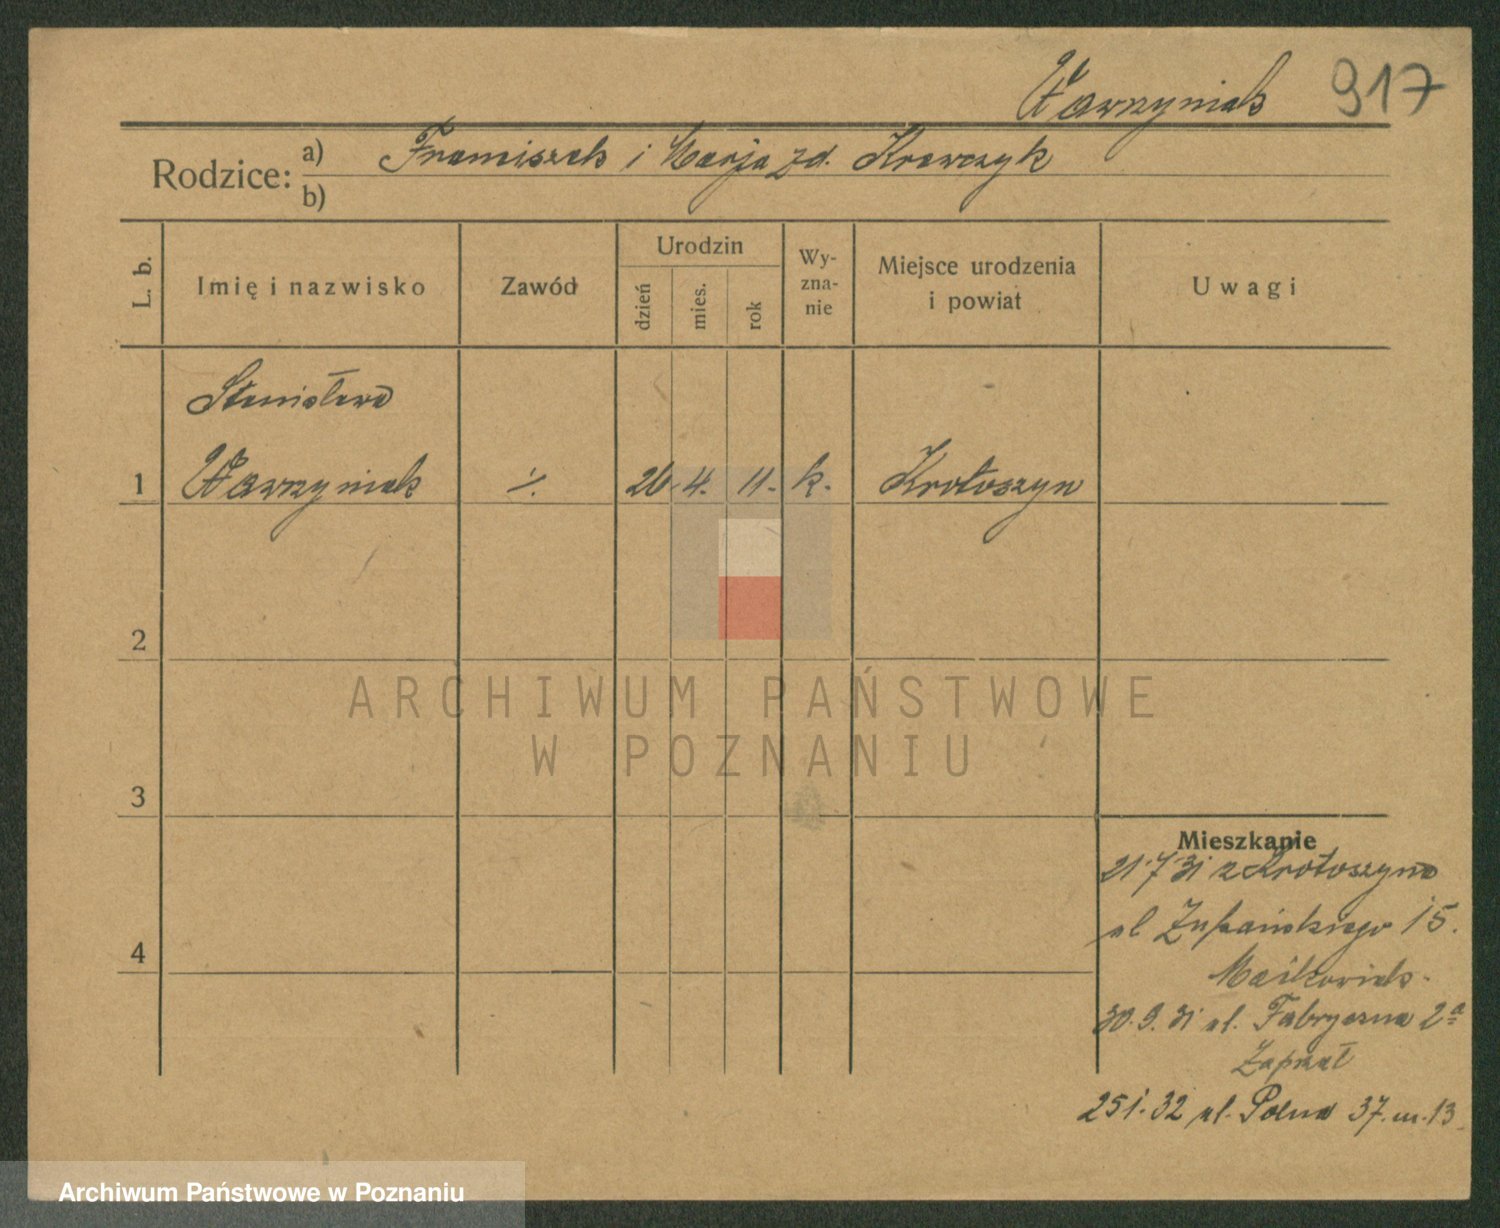 Wawrzyniak 917
Rodzice: a) Franciszek i Marja zd. Krawczyk
b)
L. b.
Imię i nazwisko
Zawód
Urodzin
dzień
mies.
rok
Wy-
zna-
nie
Miejsce urodzenia
i powiat
Uwagi
Stanisława
1 Wawrzyniak ·/. 26 4. 11. k. Krotoszyn
2
ARCHIWUM PAŃSTWOWE
W POZNANIU
3
Mieszkanie
21.7.31 z Krotoszyna
ul Żupańskiego 15.
4
30.9.31 ul. Fabryczna 2a
25 1. 32 ul. Polna 37. m. 13.
Archiwum Państwowe w Poznaniu